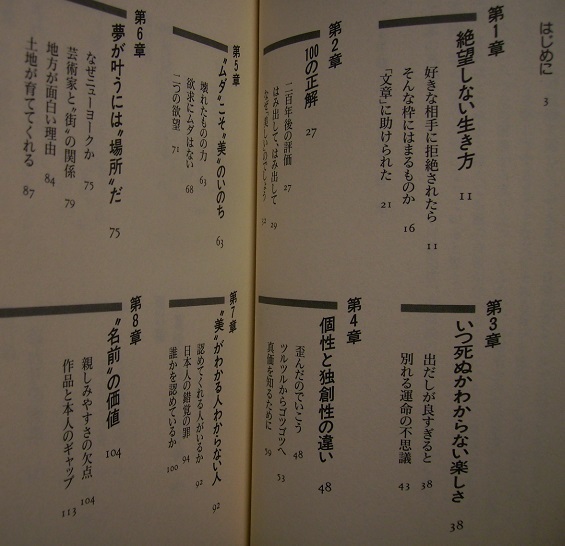 はじめに 3
第1章
絶望しない生き方 11
好きな相手に拒絶されたら 11
そんな枠にはまるものか 16
「文章」に助けられた 21
第2章
100の正解 27
二百年後の評価 27
はみ出して、はみ出して 29
なぜ、美しいのでしょう 32
第3章
いつ死ぬかわからない楽しさ 38
出だしが良すぎると 38
別れる運命の不思議 43
第4章
個性と独創性の違い 48
歪んだのでいこう 48
ツルツルからゴツゴツへ 53
真価を知るために 59
第5章
〝ムダ〟こそ〝美〟のいのち 63
壊れたものの力 63
欲求にムダはない 68
二つの欲望 71
第6章
夢が叶うには〝場所〟だ 75
なぜニューヨークか 75
芸術家と〝街〟の関係 79
地方が面白い理由 84
土地が育ててくれる 87
第7章
〝美〟がわかる人わからない人 92
認めてくれる人がいるか 92
日本人の錯覚の罪 94
誰かを認めているか 100
第8章
〝名前〟の価値 104
親しみやすさの欠点 104
作品と本人のギャップ 113